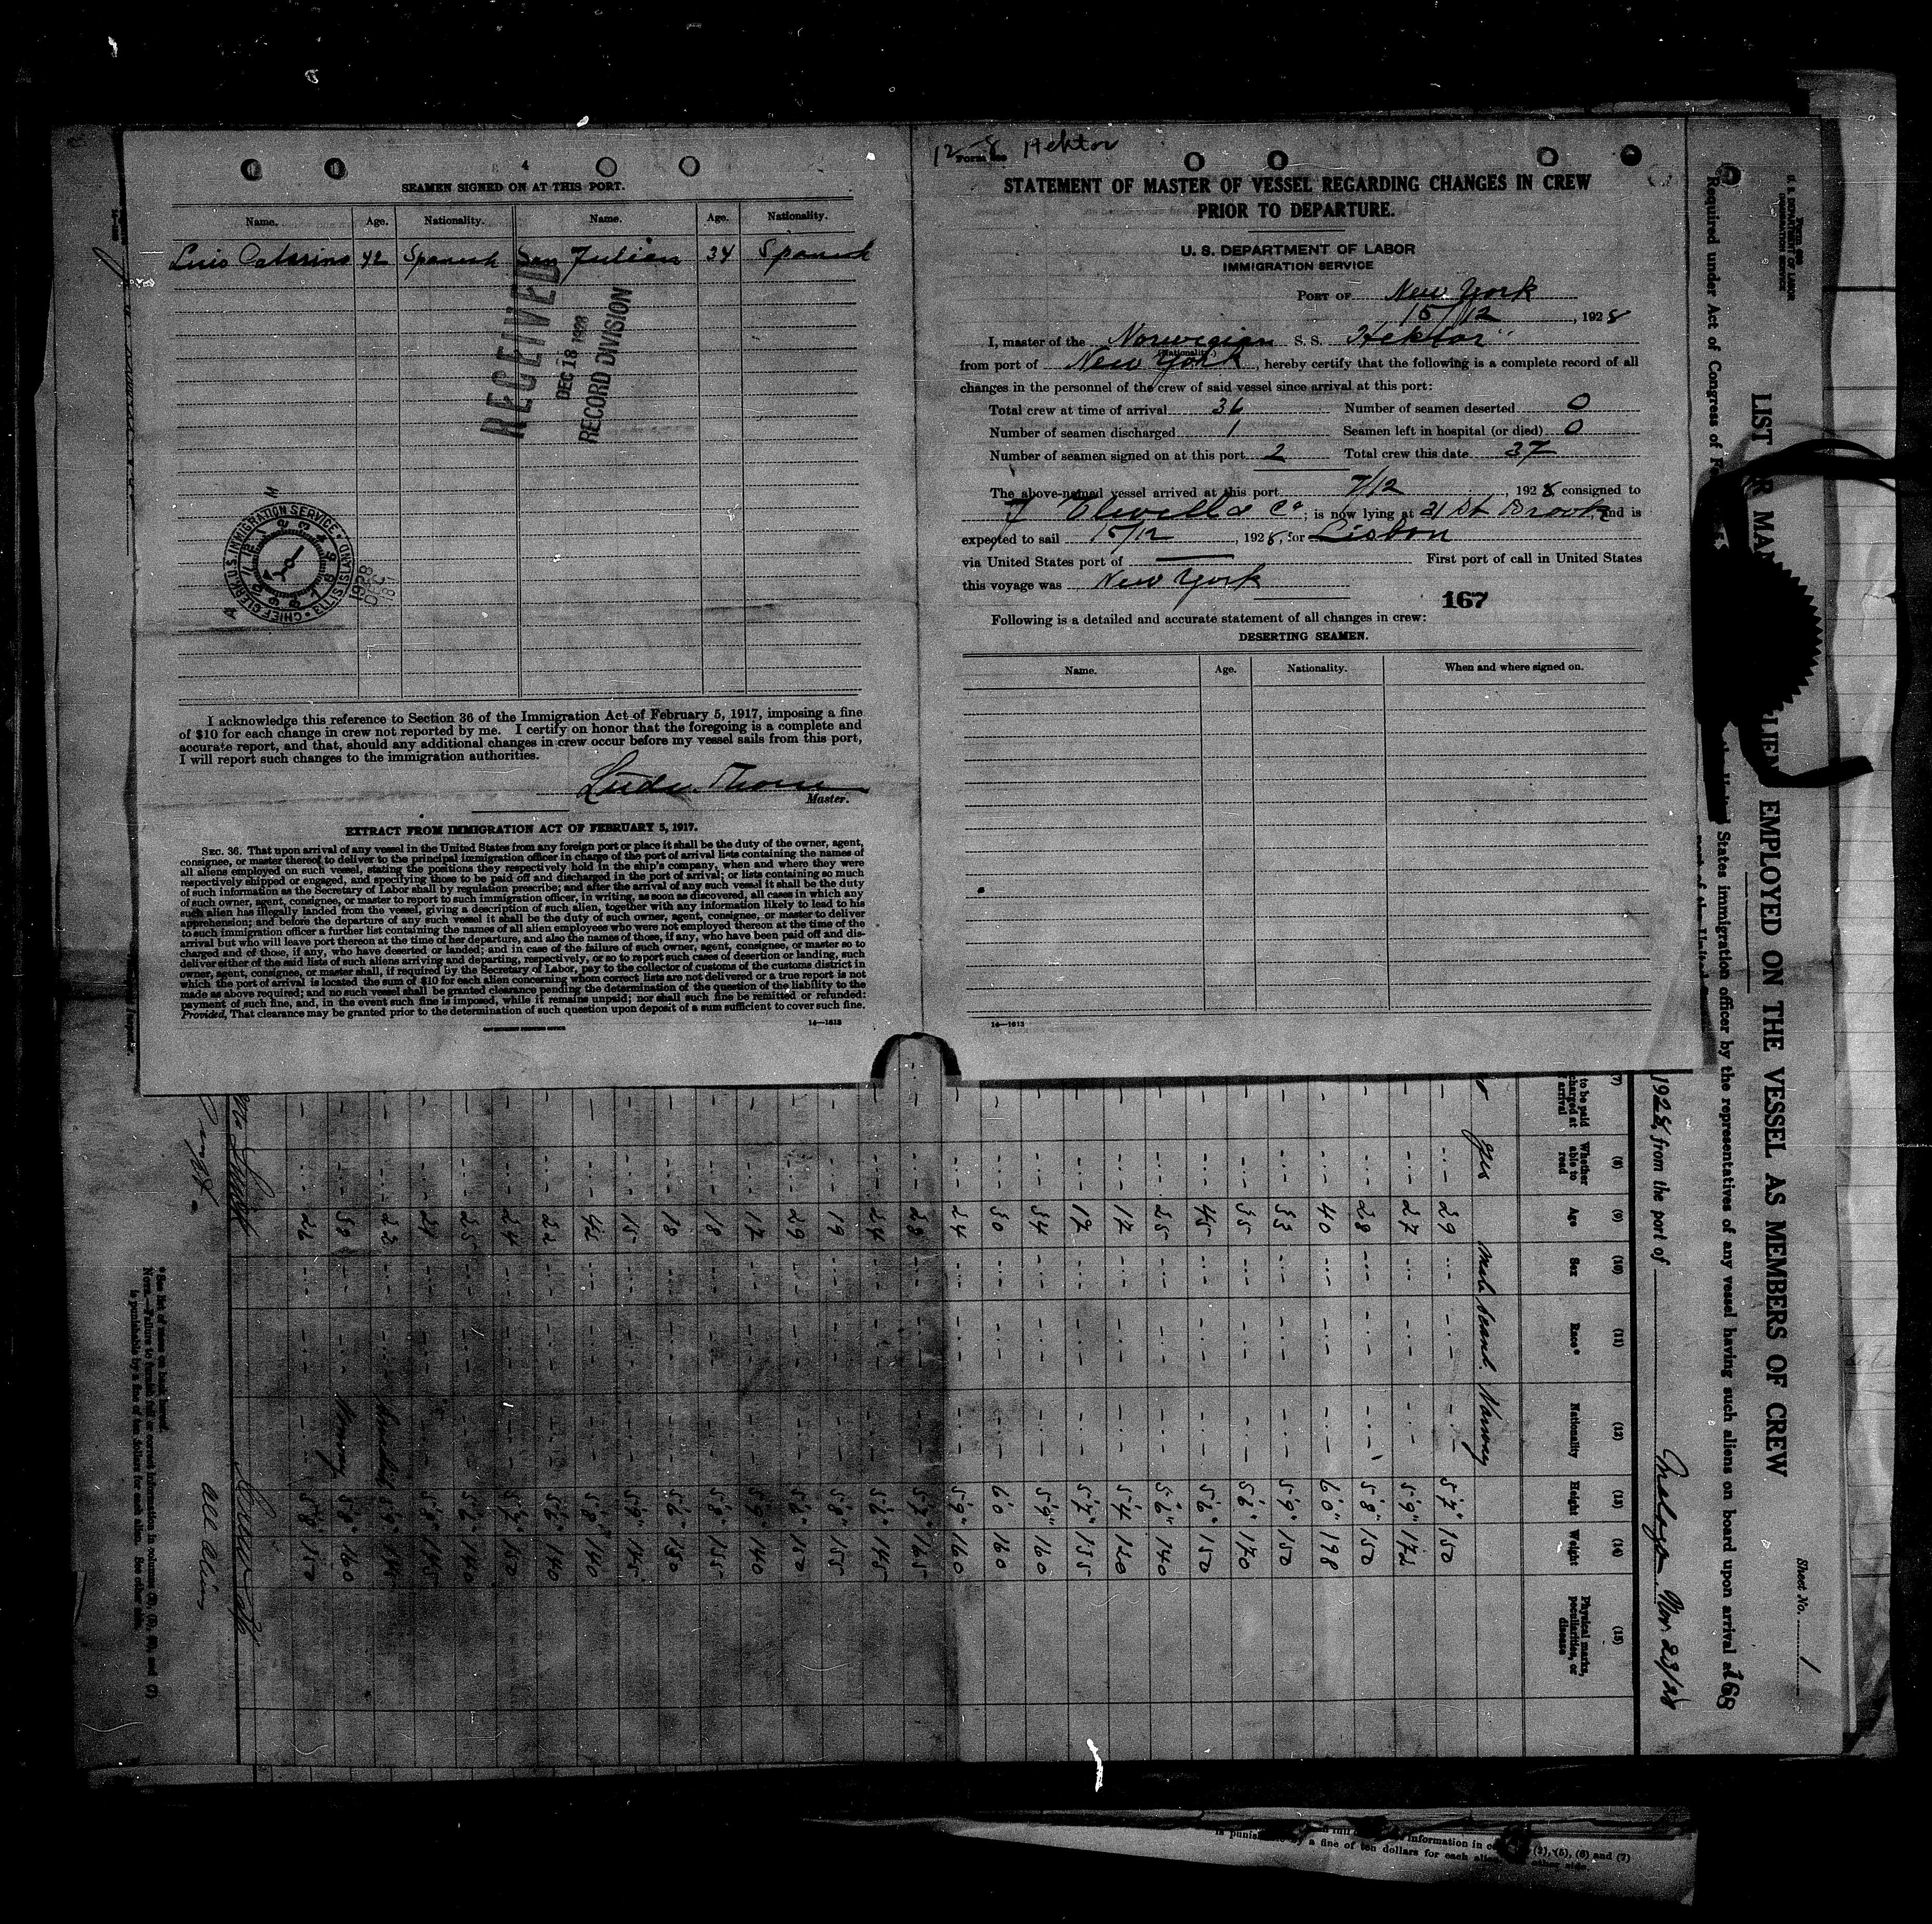 4
SEAMEN SIGNED ON AT THIS PORT.
Name. Age. Nationality. Name. Age. Nationality.
Luis Catarino 42 Spanish San Julian 34 Spanish
RECEIVED
DEC 18 1928
RECORD DIVISION
CHIEF CLERK U.S. IMMIGRATION SERVICE ELLIS ISLAND
1928
DEC
18
I acknowledge this reference to Section 36 of the Immigration Act of February 5, 1917, imposing a fine
of $10 for each change in crew not reported by me. I certify on honor that the foregoing is a complete and
accurate report, and that, should any additional changes in crew occur before my vessel sails from this port,
I will report such changes to the immigration authorities.
Master.
EXTRACT FROM IMMIGRATION ACT OF FEBRUARY 5, 1917.
SEC. 36. That upon arrival of any vessel in the United States from any foreign port or place it shall be the duty of the owner, agent,
consignee, or master thereof to deliver to the principal immigration officer in charge of the port of arrival lists containing the names of
all aliens employed on such vessel, stating the positions they respectively hold in the ship's company, when and where they were
respectively shipped or engaged, and specifying those to be paid off and discharged in the port of arrival; or lists containing so much
of such information as the Secretary of Labor shall by regulation prescribe; and after the arrival of any such vessel it shall be the duty
of such owner, agent, consignee, or master to report to such immigration officer, in writing, as soon as discovered, all cases in which any
such alien has illegally landed from the vessel, giving a description of such alien, together with any information likely to lead to his
apprehension; and before the departure of any such vessel it shall be the duty of such owner, agent, consignee, or master to deliver
to such immigration officer a further list containing the names of all alien employees who were not employed thereon at the time of the
arrival but who will leave port thereon at the time of her departure, and also the names of those, if any, who have been paid off and dis-
charged and of those, if any, who have deserted or landed; and in case of the failure of such owner, agent, consignee, or master so to
deliver either of the said lists of such aliens arriving and departing, respectively, or so to report such cases of desertion or landing, such
owner, agent, consignee, or master shall, if required by the Secretary of Labor, pay to the collector of customs of the customs district in
which the port of arrival is located the sum of $10 for each alien concerning whom correct lists are not delivered or a true report is not
made as above required; and no such vessel shall be granted clearance pending the determination of the question of the liability to the
payment of such fine, and, in the event such fine is imposed, while it remains unpaid; nor shall such fine be remitted or refunded:
Provided, That clearance may be granted prior to the determination of such question upon deposit of a sum sufficient to cover such fine.
GOVERNMENT PRINTING OFFICE 14—1613
12-8 Hektor
Form 689
STATEMENT OF MASTER OF VESSEL REGARDING CHANGES IN CREW
PRIOR TO DEPARTURE.
U. S. DEPARTMENT OF LABOR
IMMIGRATION SERVICE
PORT OF New York
15/12, 1928
I, master of the Norwegian S. S. Hektor
(Nationality.)
from port of New York, hereby certify that the following is a complete record of all
changes in the personnel of the crew of said vessel since arrival at this port:
Total crew at time of arrival 36 Number of seamen deserted 0
Number of seamen discharged 1 Seamen left in hospital (or died) 0
Number of seamen signed on at this port 2 Total crew this date 37
The above-named vessel arrived at this port 7/12, 1928, consigned to
Elwell & Co; is now lying at 21 St Brook, and is
expected to sail 15/12, 1928, for Lisbon
via United States port of First port of call in United States
this voyage was New York
167
Following is a detailed and accurate statement of all changes in crew:
DESERTING SEAMEN.
Name. Age. Nationality. When and where signed on.
14—1613
U. S. DEPARTMENT OF LABOR
IMMIGRATION SERVICE
Sheet No. 1
EMPLOYED ON THE VESSEL AS MEMBERS OF CREW
Required under Act of Congress of
States immigration officer by the representatives of any vessel having such aliens on board upon arrival
168
1928, from the port of Malaga. Nov. 23/28
(7) (8) (9) (10) (11) (12) (13) (14) (15)
to be paid
Whether able to read
Age
Sex
Race*
Nationality
Height
Weight
Physical marks, peculiarities, or disease
yes male Scand. Norway
29 5'7" 150
27 5'9" 172
28 5'8" 150
40 6'0" 198
33 5'9" 150
35 5'6" 170
45 5'6" 150
25 5'6" 140
17 5'4" 120
17 5'7" 135
34 5'9" 160
30 6'0 160
24 5'9" 160
28 5'7" 165
24 5'6" 145
19 5'8" 155
29 5'6" 150
17 5'9" 140
18 5'8" 155
18 5'6" 130
15 5'9" 145
42 5'8" 140
22 5'6" 140
24 5'7" 150
25 5'6" 140
24 5'8" 145
23 Swedish 5'9"
Norway 5'8" 160
26 5'8" 150
all alien
*See list of races on back hereof.
NOTE.—Failure to furnish full or correct information in columns
is punishable by a fine of ten dollars for each alien. See other side.
information in (5), (6) and (7)
by a fine of ten dollars for each alien other side.